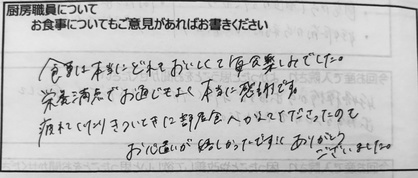 厨房職員について
お食事についてもご意見があればお書きください
食事は本当にどれもおいしくて毎食楽しみでした。
栄養満点でお通じもよく本当に感謝です。
疲れていたりきついときに部屋食へかえてくださったので
お心遣いが嬉しかったです!! ありがとう
ございました。